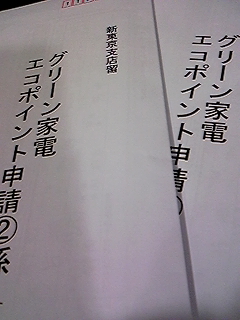 新東京支店留
グリーン家電
エコポイント申請②係
グリーン家電
エコポイント申請